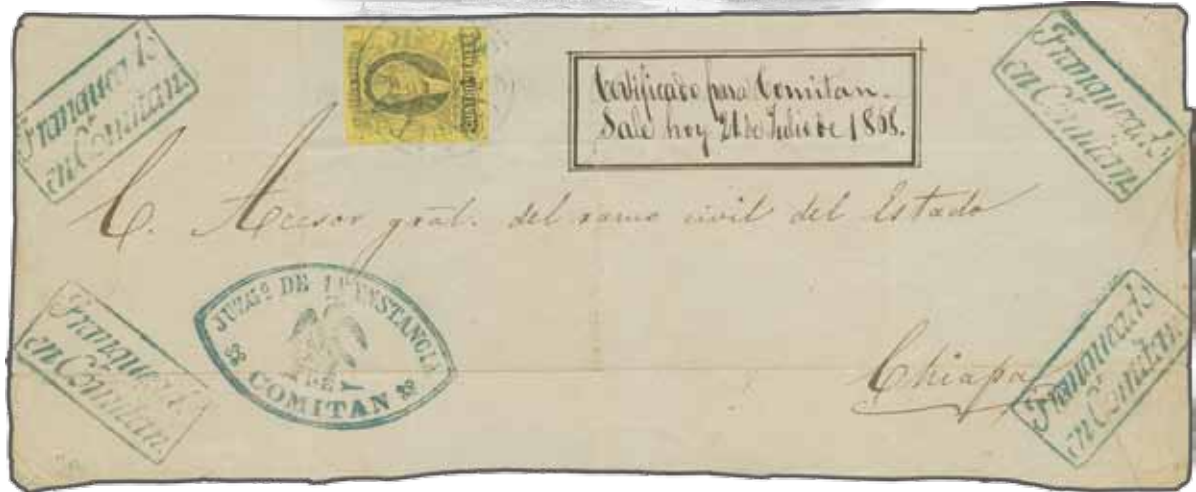 Franqueado
en Comitan.
Certificado para Comitan.
Sale hoy 21 de Julio de 1868.
Franqueado
en Comitan.
C. Acesor gral. del ramo civil del Estado
JUZGº DE 1ª YNSTANCIA
DE
COMITAN
Franqueado
en Comitan.
Chiapa
Franqueado
en Comitan.